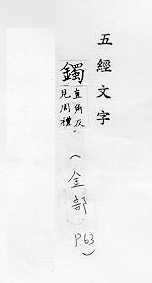 五經文字
鐲
直角反
見周禮
(金部
P.63)